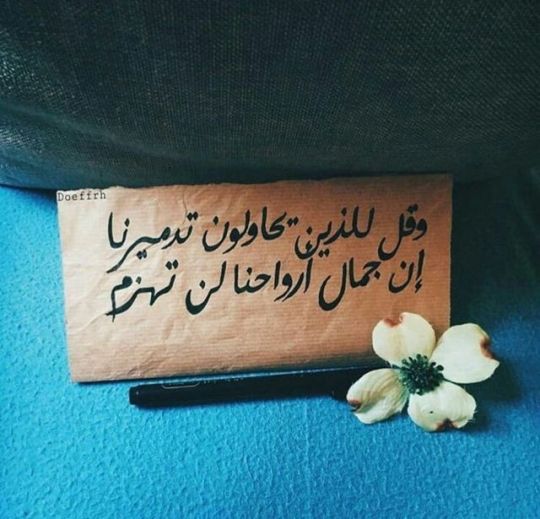 Doeffrh
وقل للذين يحاولون تدميرنا
إن جمال أرواحنا لن تهزم